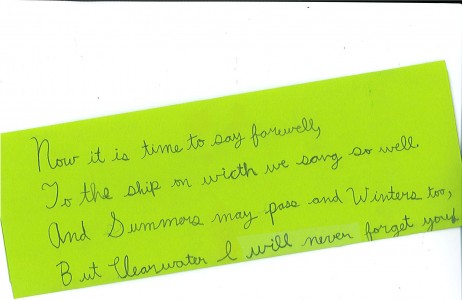 Now it is time to say farewell,
To the ship on wicth we sang so well.
And Summers may pass and Winters too,
But Clearwater I will never forget you!